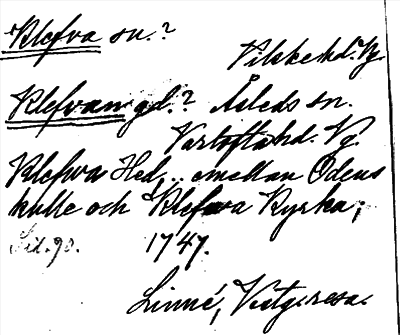 Klefva sn.?
Vilske hd. Vg.
Klefvan gd.? Åsleds sn.
Vartofta hd. Vg.
Klefwa Hed, .. emellan Odens
kulle och Klefwa Kyrka;
Sid. 90. 1747.
Linné, Vestg. resa.